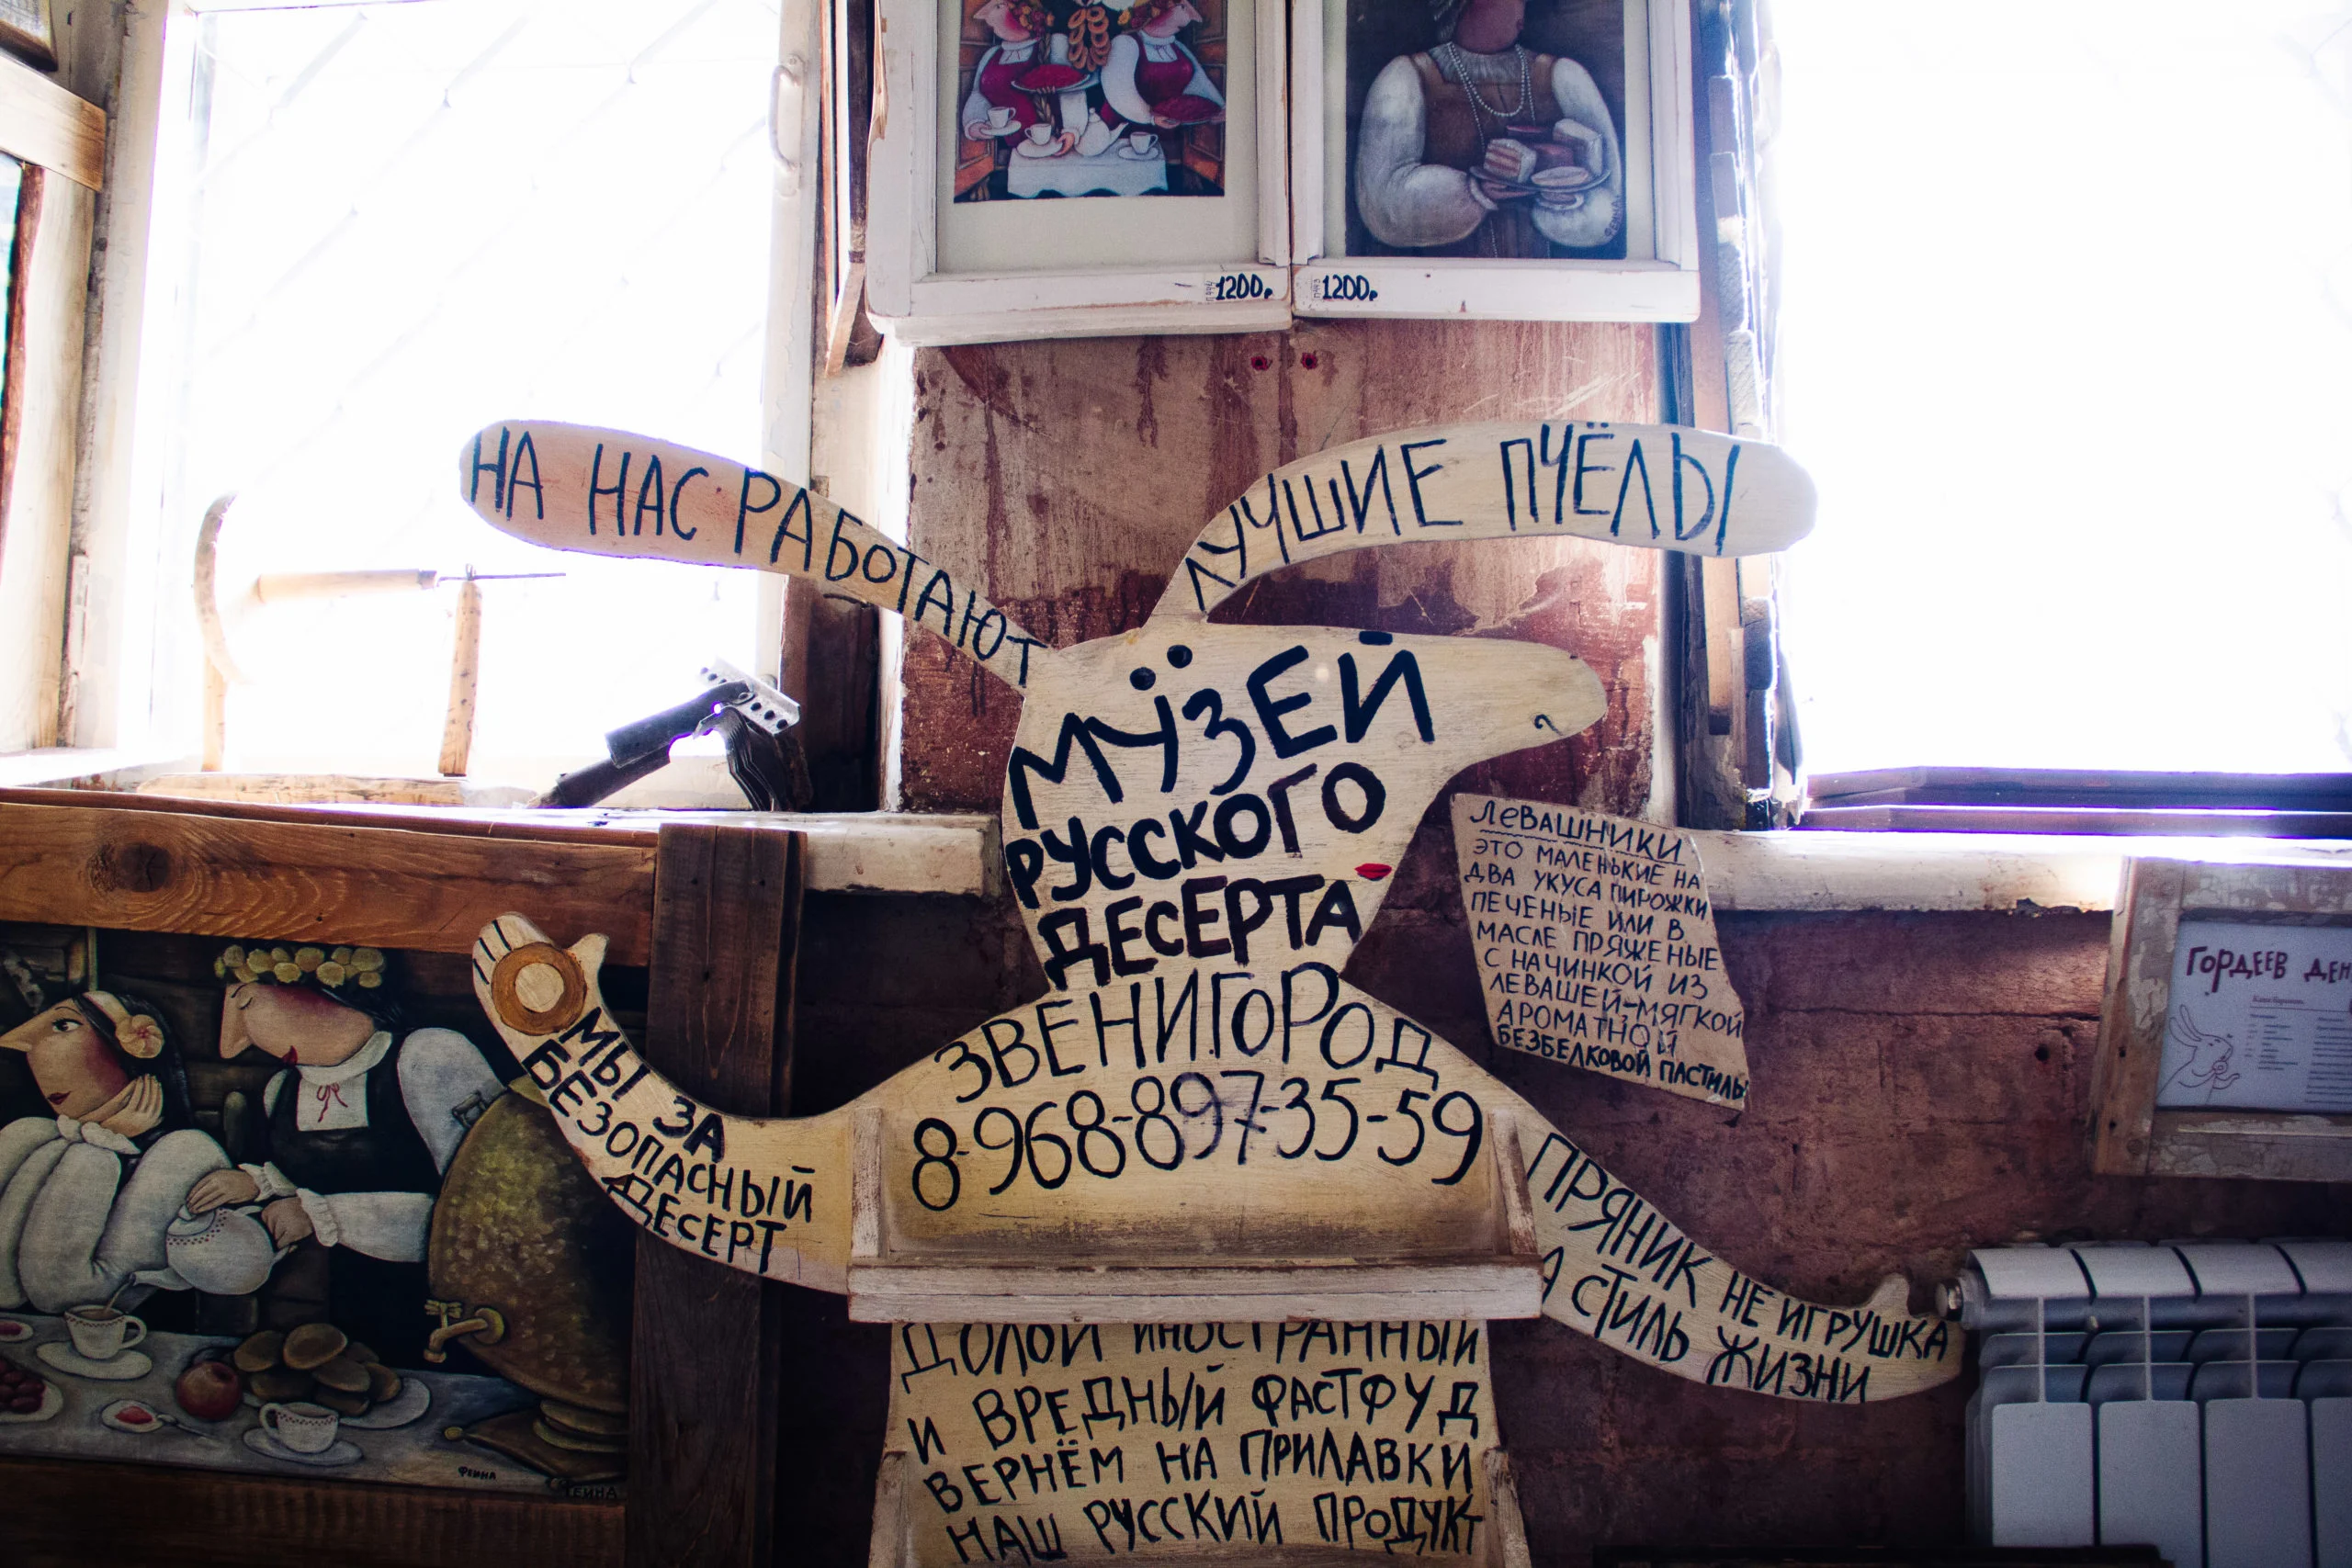 1200р
1200р
НА НАС РАБОТАЮТ
ЛУЧШИЕ ПЧЁЛЫ
МУЗЕЙ
РУССКОГО
ДЕСЕРТА
ЗВЕНИГОРОД
8-968-897-35-59
ЛЕВАШНИКИ
ЭТО МАЛЕНЬКИЕ НА
ДВА УКУСА ПИРОЖКИ
ПЕЧЕНЫЕ ИЛИ В
МАСЛЕ ПРЯЖЕНЫЕ
С НАЧИНКОЙ ИЗ
ЛЕВАШЕЙ-МЯГКОЙ
АРОМАТНОЙ
БЕЗБЕЛКОВОЙ ПАСТИЛЫ
ГОРДЕЕВ
МЫ ЗА
БЕЗОПАСНЫЙ
ДЕСЕРТ
ПРЯНИК НЕ ИГРУШКА
А СТИЛЬ ЖИЗНИ
ДОЛОЙ ИНОСТРАННЫЙ
И ВРЕДНЫЙ ФАСТФУД
ВЕРНЁМ НА ПРИЛАВКИ
НАШ РУССКИЙ ПРОДУКТ
ФЕИНА
ФЕИНА